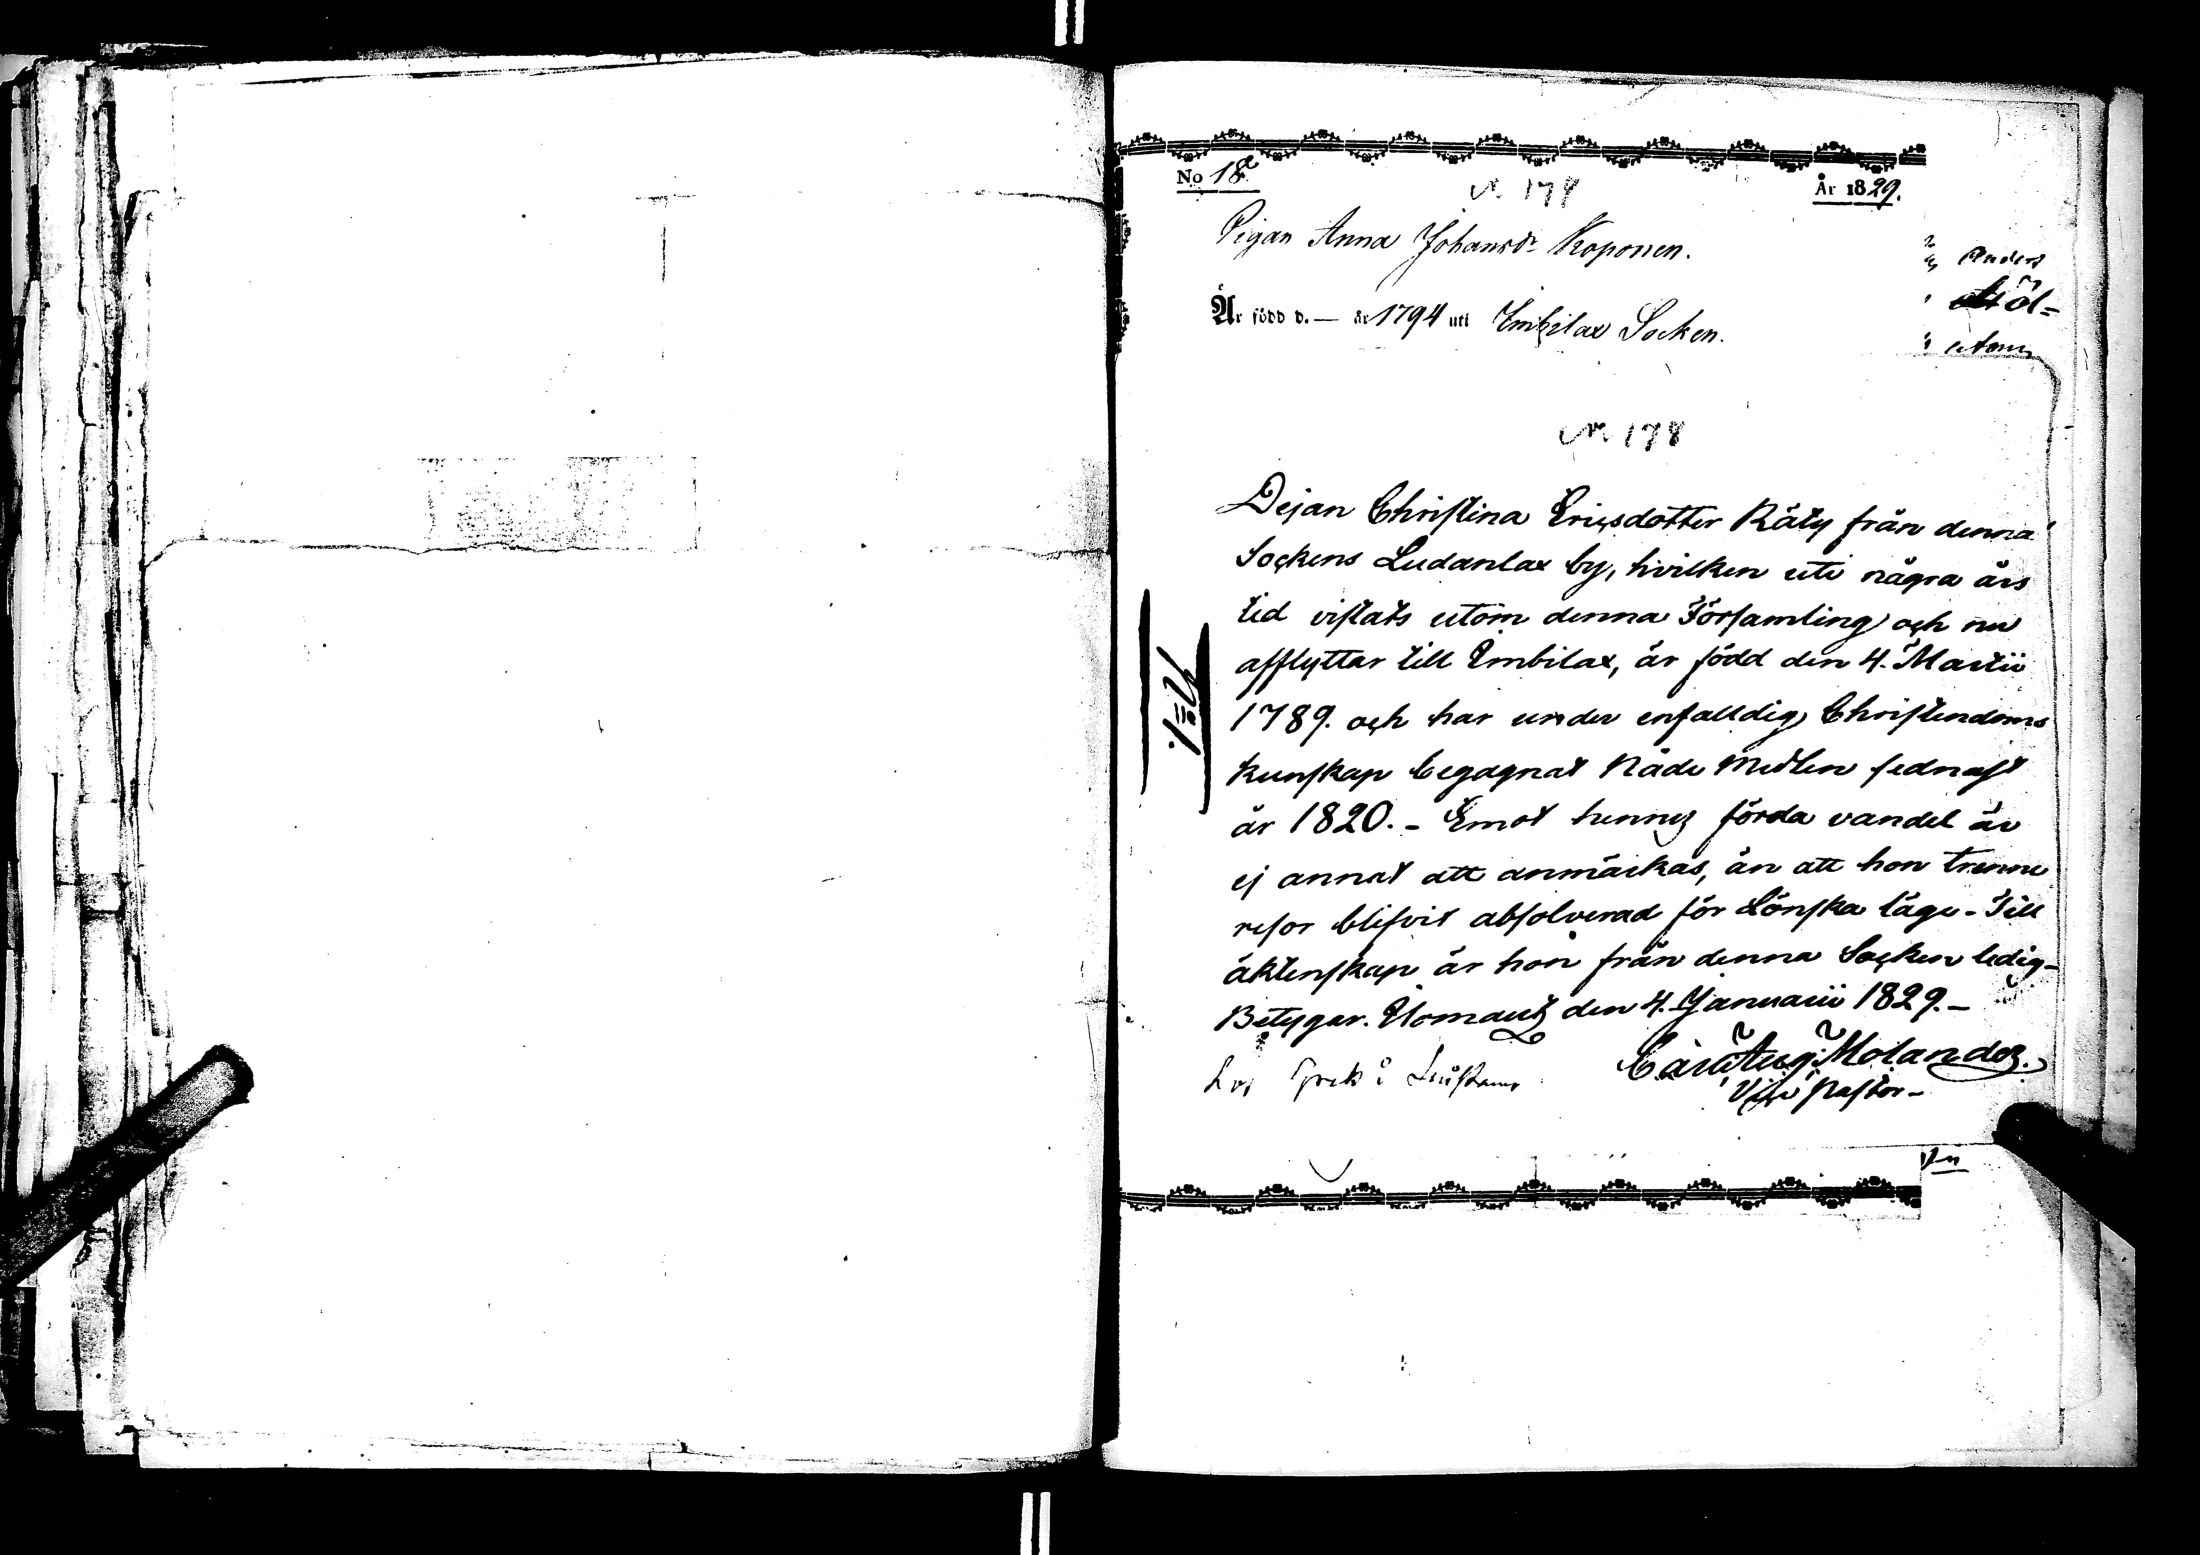 No 18.
År 1829.
N. 178
Pigan Anna Johansdr Koponen.
Är född d. — år 1794 uti Imbilax Socken.
Anders
N. 178
Dejan Christina Ericsdotter Räty från denna
Sockens Ludanlax by, hvilken uti några års
tid vistats utom denna Församling och nu
afflyttar till Imbilax, är född den 4. Martii
1789. och har under enfalldig Christendoms
kunskap begagnat Nåde Medlen sednast
år 1820. - Emot hennes förda vandel är
ej annat att anmärkas, än att hon trenne
resor blifvit absolverad för Lönska läge - Till
äktenskap är hon från denna Socken ledig -
Betygar. Ilomantz den 4. Januarii 1829. -
Carl Aug: Molander.
Vice Pastor -